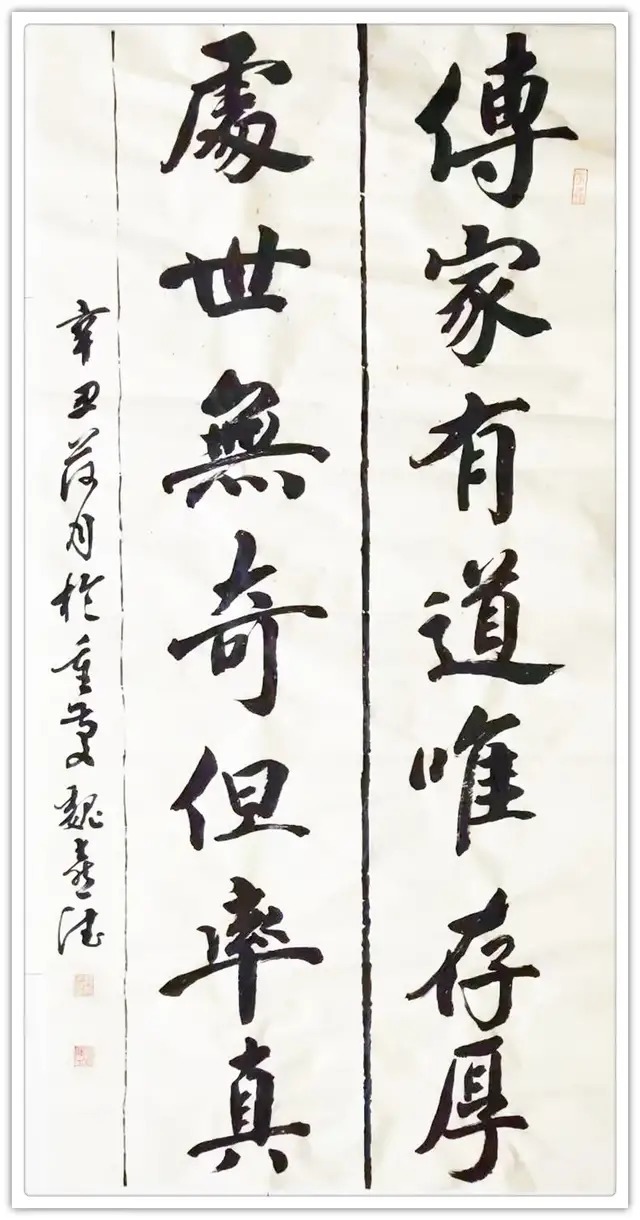 傳家有道唯存厚
處世無奇但率真
辛丑荷月於重慶魏喜德